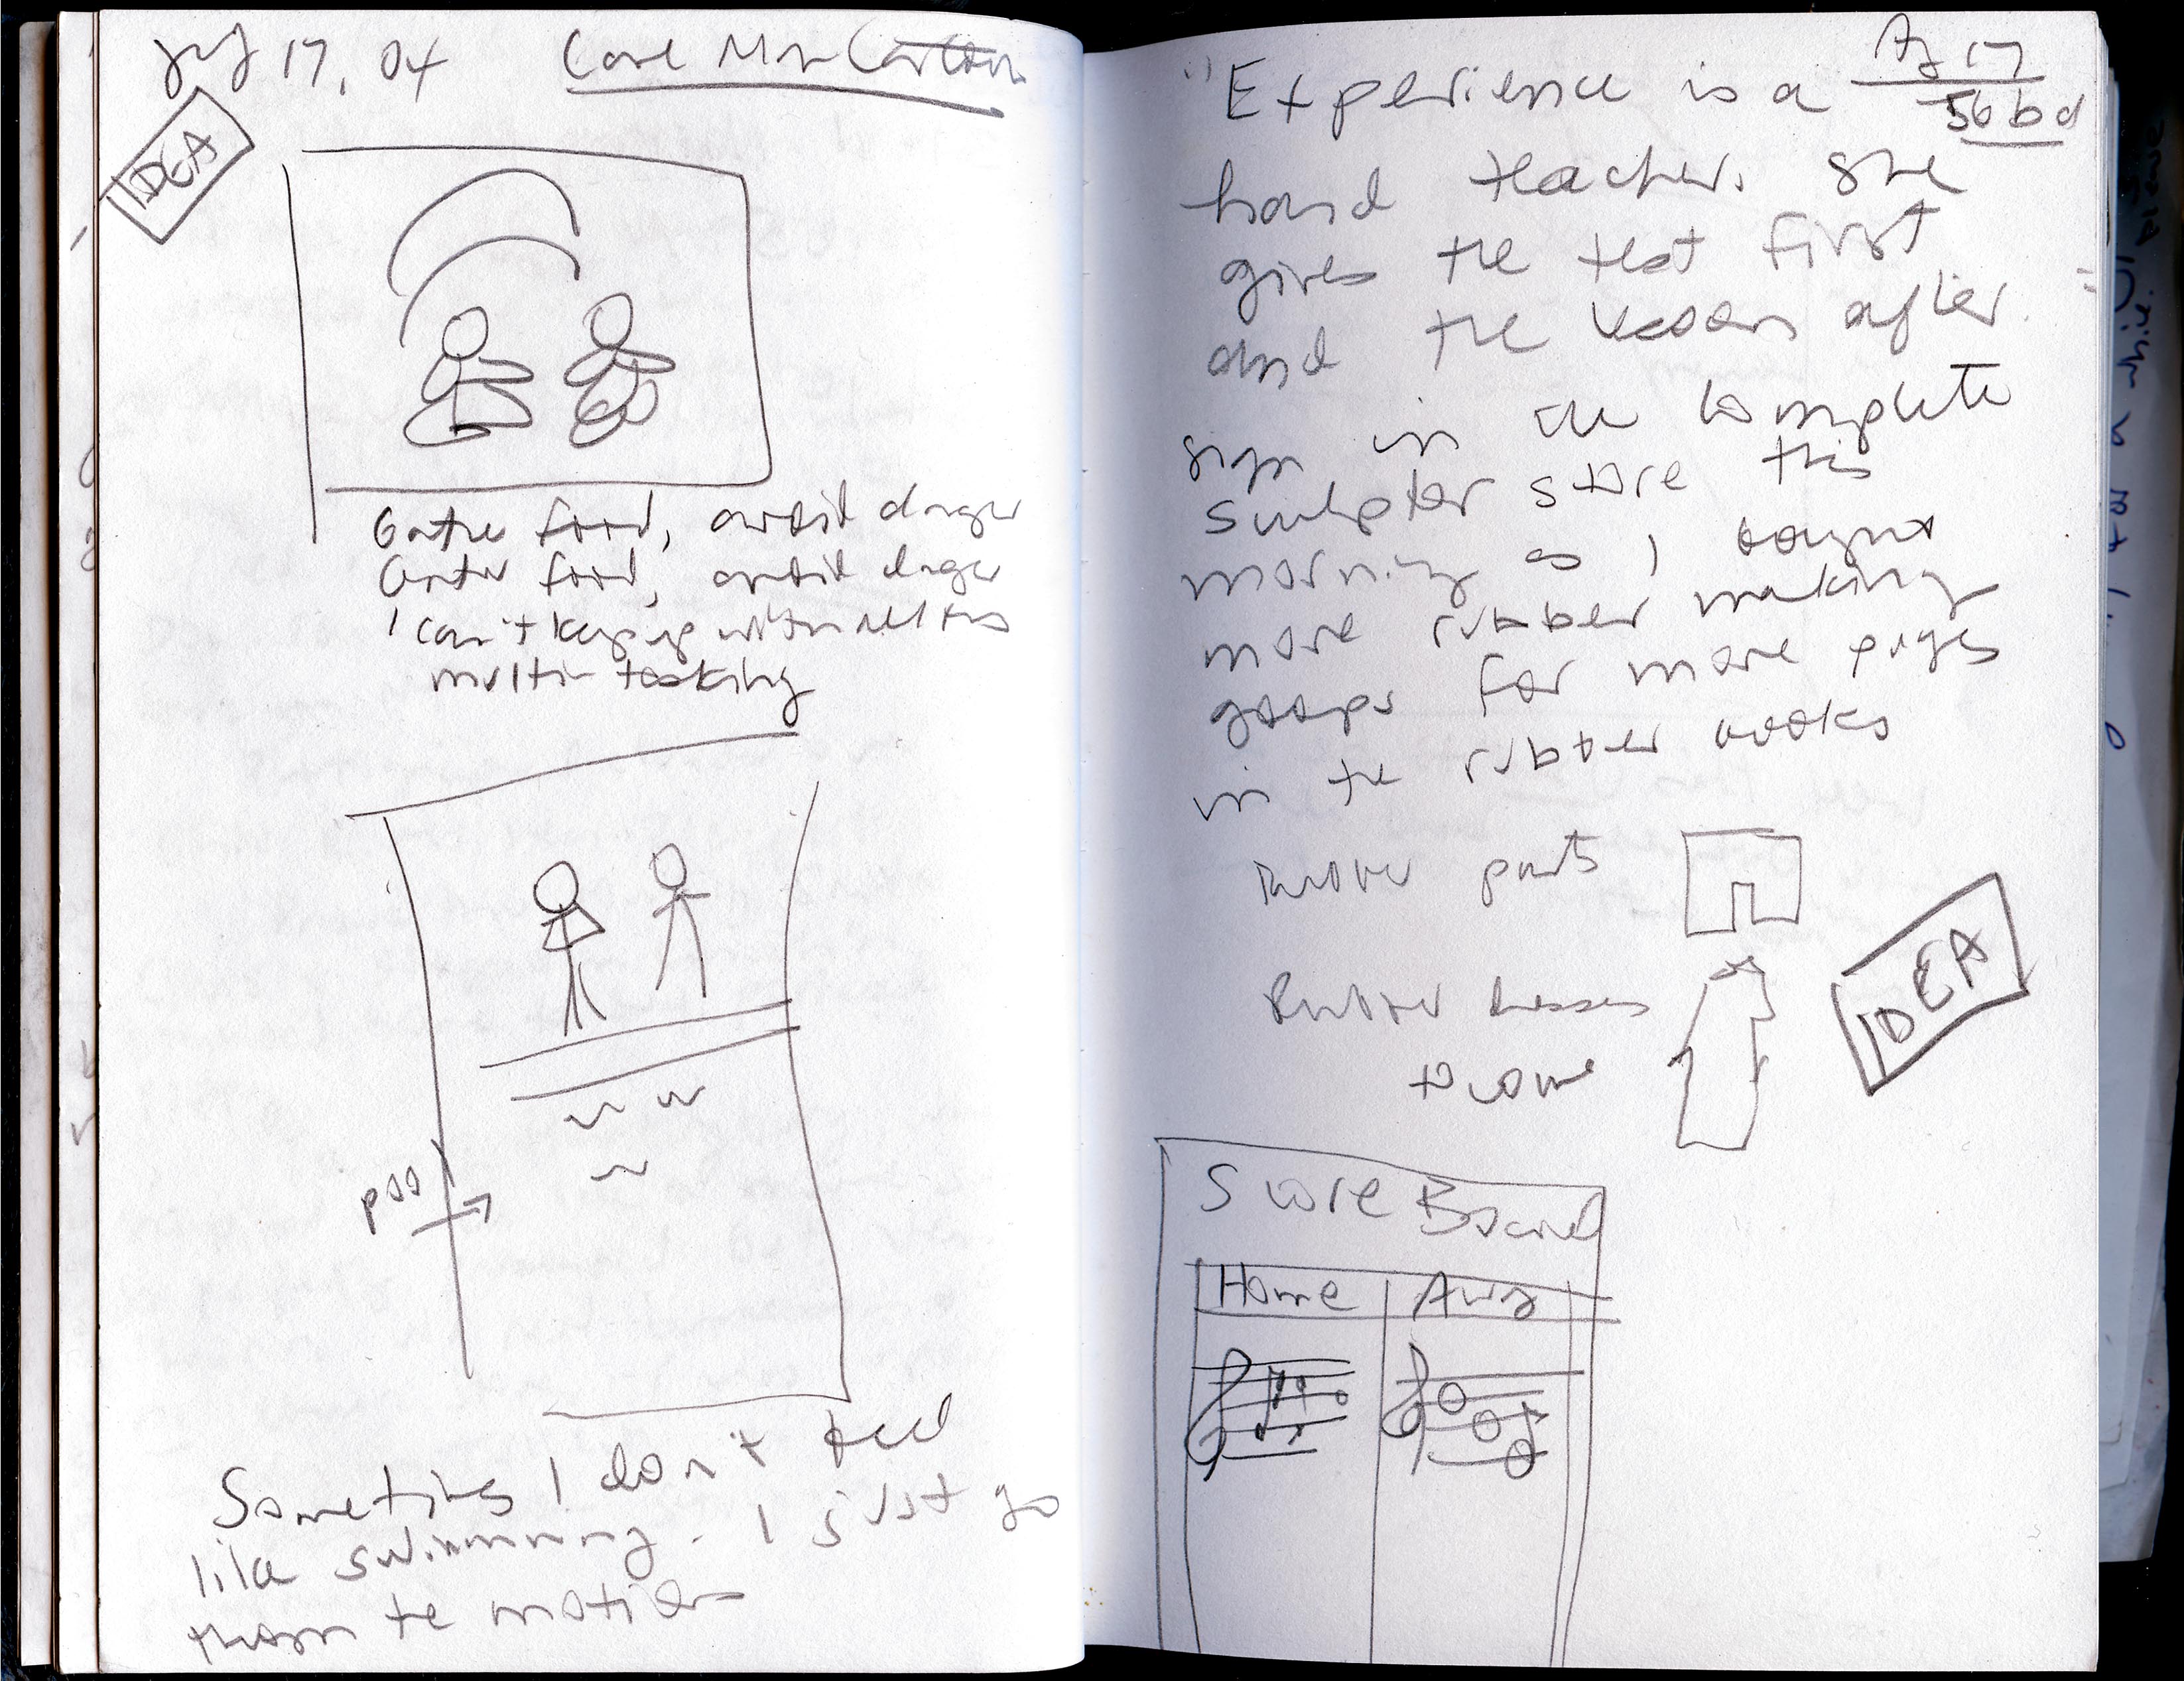 July 17, 04 Cave Man Cartoon
IDEA
Gather food, avoid danger
Gather food, avoid danger
I can't keep up with all this
multi-tasking
pool
Sometimes I don't feel
like swimming - I just go
through the motions
"Experience is a
17
56 bd
hard teacher. She
gives the test first
and the lesson after
sign in the complete
sculpter store this
morning as I bought
more rubber making
goops for more pages
in the rubber books
Rubber parts
Rubber dresses
IDEA
Score Board
Home Away